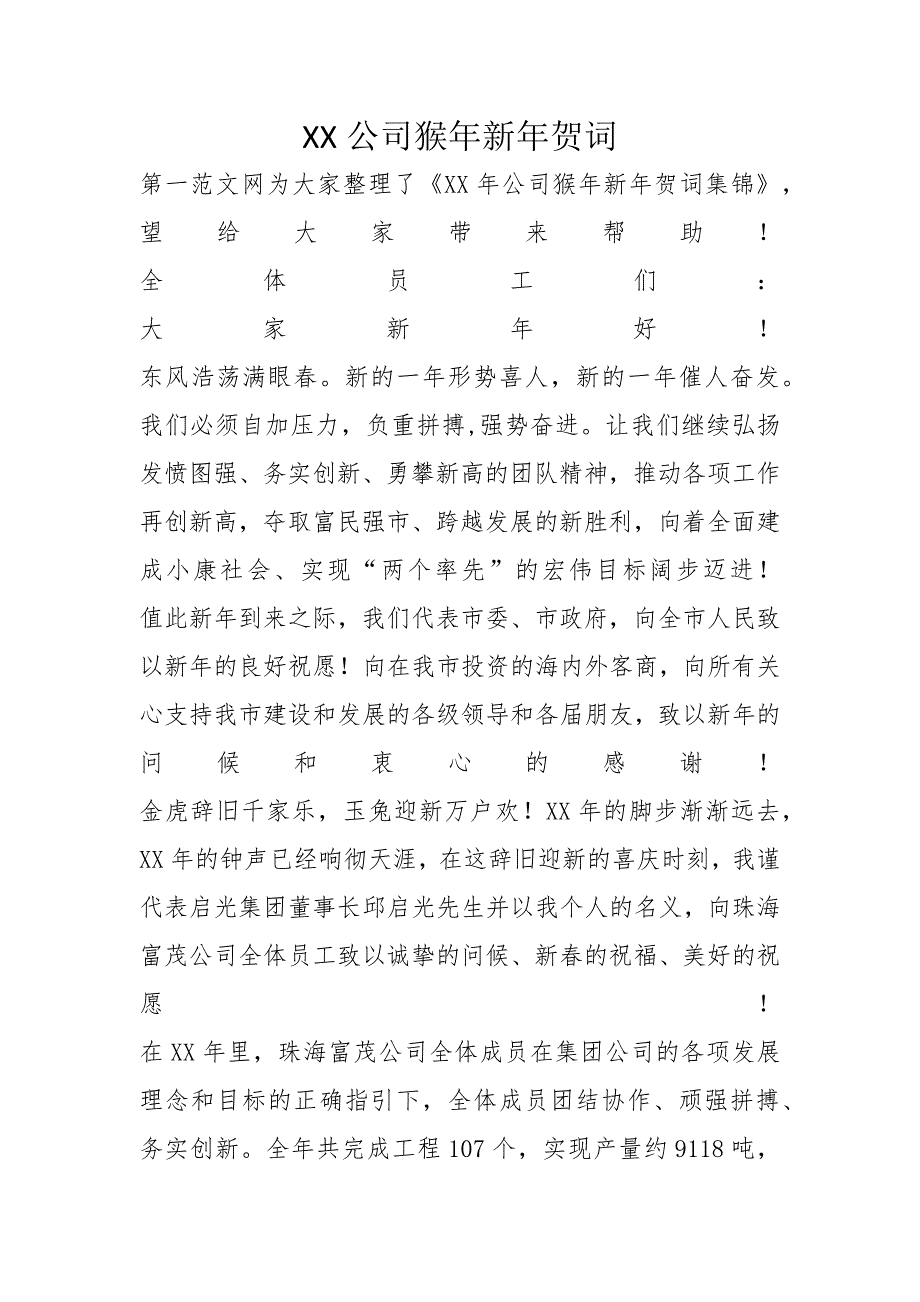 XX 公司猴年新年贺词
第一范文网为大家整理了《XX 年公司猴年新年贺词集锦》，
望给大家带来帮助！
全体员工们：
大家新年好！
东风浩荡满眼春。新的一年形势喜人，新的一年催人奋发。
我们必须自加压力，负重拼搏,强势奋进。让我们继续弘扬
发愤图强、务实创新、勇攀新高的团队精神，推动各项工作
再创新高，夺取富民强市、跨越发展的新胜利，向着全面建
成小康社会、实现“两个率先”的宏伟目标阔步迈进！
值此新年到来之际，我们代表市委、市政府，向全市人民致
以新年的良好祝愿！向在我市投资的海内外客商，向所有关
心支持我市建设和发展的各级领导和各届朋友，致以新年的
问候和衷心的感谢！
金虎辞旧千家乐，玉兔迎新万户欢！XX 年的脚步渐渐远去，
XX 年的钟声已经响彻天涯，在这辞旧迎新的喜庆时刻，我谨
代表启光集团董事长邱启光先生并以我个人的名义，向珠海
富茂公司全体员工致以诚挚的问候、新春的祝福、美好的祝
愿！
在 XX 年里，珠海富茂公司全体成员在集团公司的各项发展
理念和目标的正确指引下，全体成员团结协作、顽强拼搏、
务实创新。全年共完成工程 107 个，实现产量约 9118 吨，